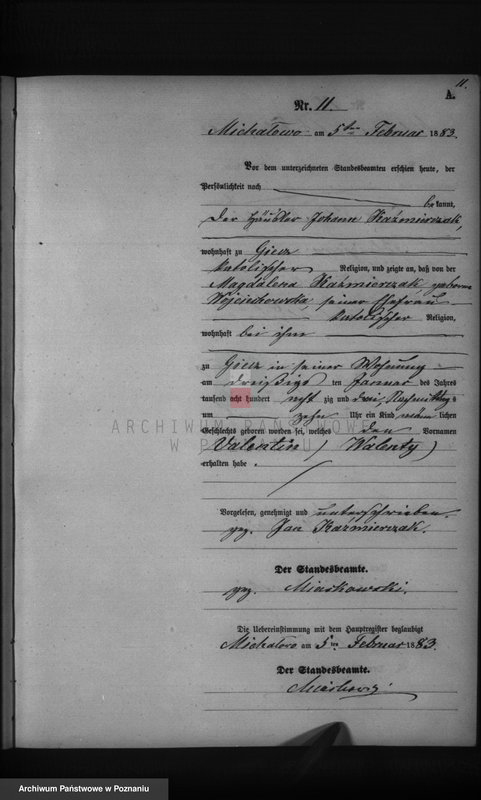 11.
A.
Nr. 11.
Michałowo am 5ten Februar 1883.
Vor dem unterzeichneten Standesbeamten erschien heute, der
Persönlichkeit nach
bekannt,
der Häusler Johann Kaźmierczak,
wohnhaft zu Giecz
katolischer Religion, und zeigte an, daß von der
Magdalena Kaźmierczak geborne
Wojciechowska, seiner Ehefrau
katolischer Religion,
wohnhaft bei ihm
zu Giecz in seiner Wohnung
am dreißigsten Januar des Jahres
tausend acht hundert achtzig und drei, Nachmittags
um zehn Uhr ein Kind männlichen
Geschlechts geboren worden sei, welches den Vornamen
Valentin (Walenty)
erhalten habe.
Vorgelesen, genehmigt und unterschrieben.
gez. Jan Kazmierczak.
Der Standesbeamte.
gez. Miaskowski.
Die Uebereinstimmung mit dem Hauptregister beglaubigt
Michałowo am 5ten Februar 1883.
Der Standesbeamte.
ARCHIWUM PAŃSTWOWE
W POZNANIU
Archiwum Państwowe w Poznaniu